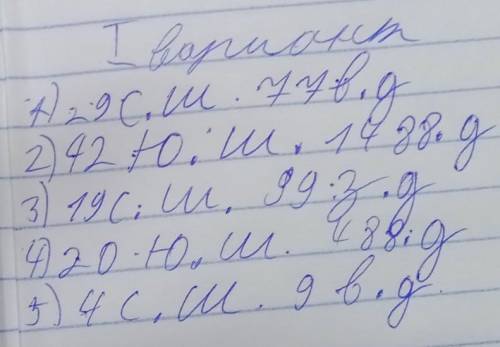 I вариант
1) 29 С. Ш. 77 в. д
2) 42 Ю. Ш. 147 в. д
3) 19 С. Ш. 99 з. д
4) 20 Ю. Ш. 48 в. д
5) 4 С. Ш. 9 в. д.